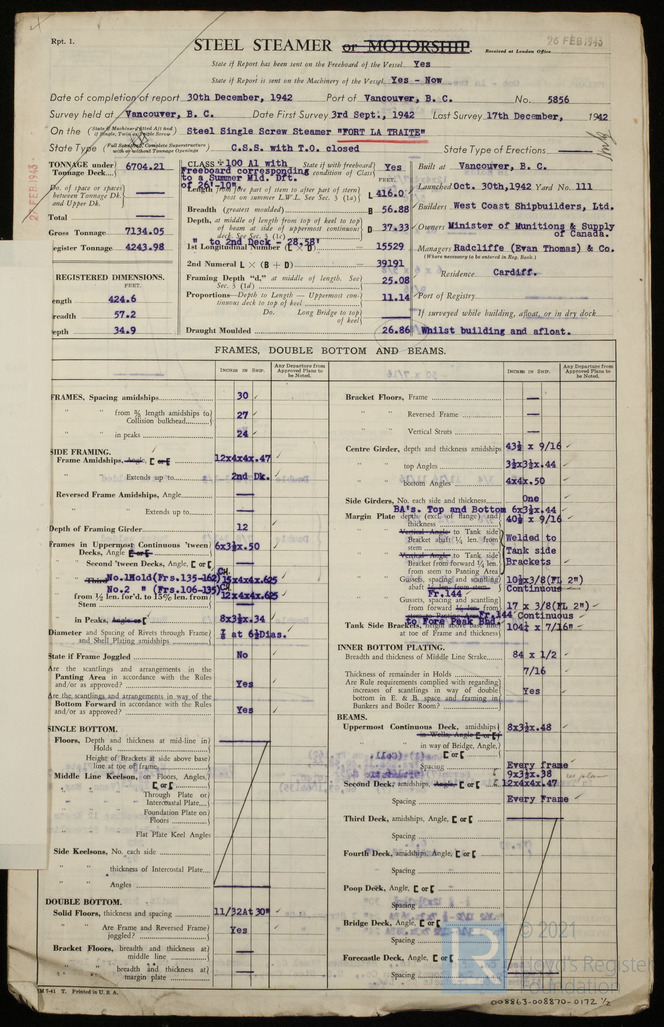 Rpt. 1.
26 FEB 1943
STEEL STEAMER or MOTORSHIP.
Received at London Office
State if Report has been sent on the Freeboard of the Vessel Yes
State if Report is sent on the Machinery of the Vessel Yes - Now
Date of completion of report 30th December, 1942 Port of Vancouver, B. C. No. 5856
Survey held at Vancouver, B. C. Date First Survey 3rd Sept., 1942 Last Survey 17th December, 1942
On the (State if Machinery fitted Aft and if Single, Twin or Triple Screw) Steel Single Screw Steamer "FORT LA TRAITE"
State Type (Full Scantling, Complete Superstructure with or without Tonnage Openings) C.S.S. with T.O. closed State Type of Erections
27 FEB 1943
TONNAGE under Tonnage Deck 6704.21
Do. of space or spaces between Tonnage Dk. and Upper Dk.
Total
Gross Tonnage 7134.05
Register Tonnage 4243.98
REGISTERED DIMENSIONS.
FEET.
ength 424.6
readth 57.2
epth 34.9
CLASS 100 A1 with State if with freeboard condition of Class Yes
Freeboard corresponding to a Summer Mld. Dft. of 26'-10"
FEET.
Length from fore part of stem to after part of stern post on summer L.W.L. See Sec. 3 (1a) L 416.0
Breadth (greatest moulded) B 56.88
Depth, at middle of length from top of keel to top of beam at side of uppermost continuous deck. See Sec. 3 (1c) D 37.33
" to 2nd Deck - 28.58'
1st Longitudinal Number (L × D) 15529
2nd Numeral L × (B + D) 39191
Framing Depth "d," at middle of length. See Sec. 3 (1d) 25.08
Proportions—Depth to Length—Uppermost continuous deck to top of keel 11.14
Do. Long Bridge to top of keel
Draught Moulded 26.86
Built at Vancouver, B. C.
Launched Oct. 30th, 1942 Yard No. 111
Builders West Coast Shipbuilders, Ltd.
Owners Minister of Munitions & Supply of Canada.
Managers Radcliffe (Evan Thomas) & Co.
(Where necessary to be entered in Reg. Book.)
Residence Cardiff.
Port of Registry
If surveyed while building, afloat, or in dry dock
Whilst building and afloat.
FRAMES, DOUBLE BOTTOM AND BEAMS.
INCHES IN SHIP. Any Departure from Approved Plans to be Noted.
FRAMES, Spacing amidships 30
" " from ⅗ length amidships to Collision bulkhead 27
" " in peaks 24
SIDE FRAMING.
Frame Amidships, Angle, [ or [ 12x4x4x.47
" " Extends up to 2nd Dk.
Reversed Frame Amidships, Angle
" " Extends up to
Depth of Framing Girder 12
Frames in Uppermost Continuous 'tween Decks, Angle [ or [ 6x3½x.50
" Second 'tween Decks, Angle, [ or [
" Third No.1Hold(Frs.135-162) CH. 15x4x4x.625
No.2 " (Frs.106-135) CH. 12x4x4x.625
" from ⅕ len. for'd. to 15% len. from Stem
" in Peaks, Angle or [ 8x3½x.34
Diameter and Spacing of Rivets through Frame and Shell Plating amidships ⅞ at 6⅛Dias.
State if Frame Joggled No
Are the scantlings and arrangements in the Panting Area in accordance with the Rules and/or as approved? Yes
Are the scantlings and arrangements in way of the Bottom Forward in accordance with the Rules and/or as approved? Yes
SINGLE BOTTOM.
Floors, Depth and thickness at mid-line in Holds
Height of Brackets at side above base line at toe of frame
Middle Line Keelson, on Floors, Angles, [ or [
" " Through Plate or Intercostal Plate
" " Foundation Plate on Floors
" " Flat Plate Keel Angles
Side Keelsons, No. each side
" " thickness of Intercostal Plate
" " Angles
DOUBLE BOTTOM.
Solid Floors, thickness and spacing 11/32At 30"
" " Are Frame and Reversed Frame joggled? Yes
Bracket Floors, breadth and thickness at middle line
" " breadth and thickness at margin plate
INCHES IN SHIP. Any Departure from Approved Plans to be Noted.
Bracket Floors, Frame
" " Reversed Frame
" " Vertical Struts
Centre Girder, depth and thickness amidships 43½ x 9/16
" " top Angles 3½x3½x.44
" " bottom Angles 4x4x.50
Side Girders, No. each side and thickness One
BA's. Top and Bottom 6x3½x.44
Margin Plate depth (excl. of flange) and thickness 40½ x 9/16
" " Vertical Angle to Tank side Bracket abaft ¼ len. from stem Welded to
" " Vertical Angle to Tank side Bracket from forward ¼ len. from stem to Panting Area Tank side Brackets
" " Gussets, spacing and scantling abaft ¼ len. from stem Fr.144 10½x3/8(FL 2") Continuous
" " Gussets, spacing and scantling from forward ¼ len. from Fr.144 to Fore Peak Bhd. 17 x 3/8(FL 2") Continuous
Tank Side Brackets, height above base line at toe of Frame and thickness 104½ x 7/16"
INNER BOTTOM PLATING.
Breadth and thickness of Middle Line Strake 84 x 1/2
Thickness of remainder in Holds 7/16
Are Rule requirements complied with regarding increases of scantlings in way of double bottom in E. & B. space and framing in Bunkers and Boiler Room? Yes
BEAMS.
Uppermost Continuous Deck, amidships 8x3½x.48
in Wells, Angle [ or [
" " in way of Bridge, Angle, [ or [
" " Spacing Every frame
9x3½x.38
Second Deck, amidships, Angle, [ or [ 12x4x4x.47
" " Spacing Every Frame
Third Deck, amidships, Angle, [ or [
" " Spacing
Fourth Deck, amidships, Angle, [ or [
" " Spacing
Poop Deck, Angle, [ or [
" " Spacing
Bridge Deck, Angle, [ or [
" " Spacing
Forecastle Deck, Angle, [ or [
" " Spacing
M 7-41 T. Printed in U. S. A.
LR
© 2021
Lloyd's Register Foundation
008863-008870-0172 ½